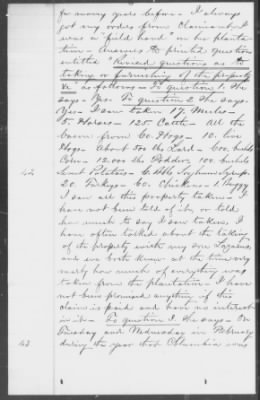 for many years before. I always
got my orders from claimant. I
was a "field hand" on her planta
tion — Answers to printed question
entitled "Revised questions as to
taking or furnishing of the property
&c" as follows — To question 1. He
says — Yes. To question 2 He says.
Yes — I saw taken 17 Mules —
5 Horses — 125 Cattle — All the
bacon from 60 Hogs — 10. live
Hogs. About 500 lbs Lard — 600. bushels
Corn — 12.000 lbs Fodder, 100 bushels
42 Sweet Potatoes — Bbls Sorghum Syrup.
20. Turkeys — 60. Chickens — 1 Buggy
I saw all this property taken — I
have not been told of it, or told
how much to say I saw taken, I
have often talked about the taking
of the property with my son
and we both knew at the time very
nearly how much of everything was
taken from the plantation — I have
not been promised anything if this
claim is paid and have no interest
in it — To question 3 He says — On
Tuesday and Wednesday in February
43 during the year that Columbia was